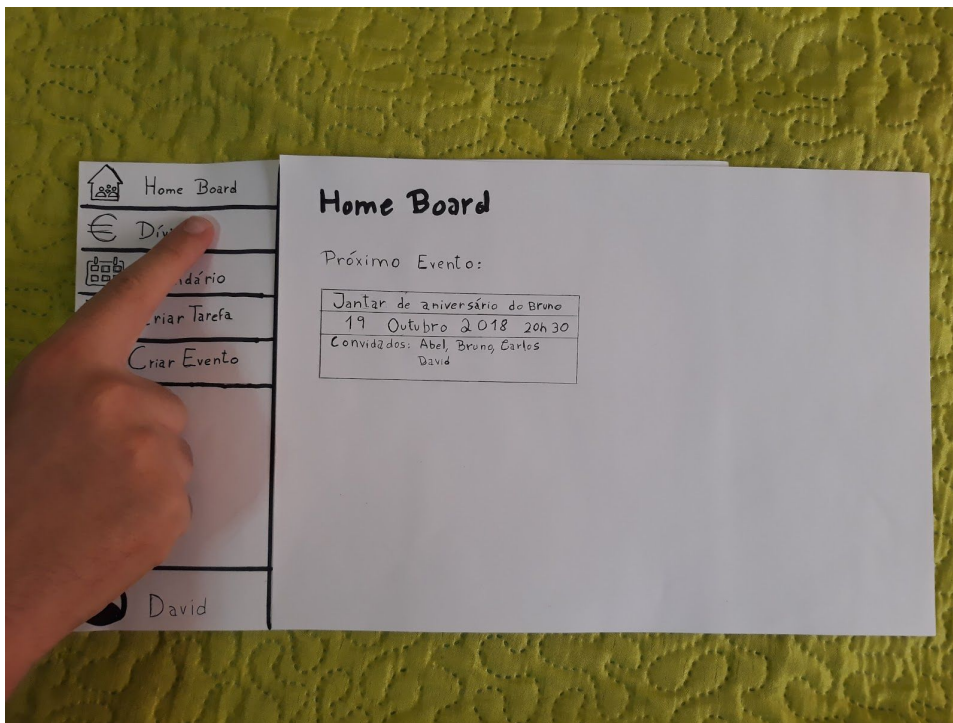 Home Board
€
Criar Evento
David
Home Board
Próximo Evento:
Jantar de aniversário do Bruno
19 Outubro 2018 20h30
Convidados: Abel, Bruno, Carlos
David
Tarefa